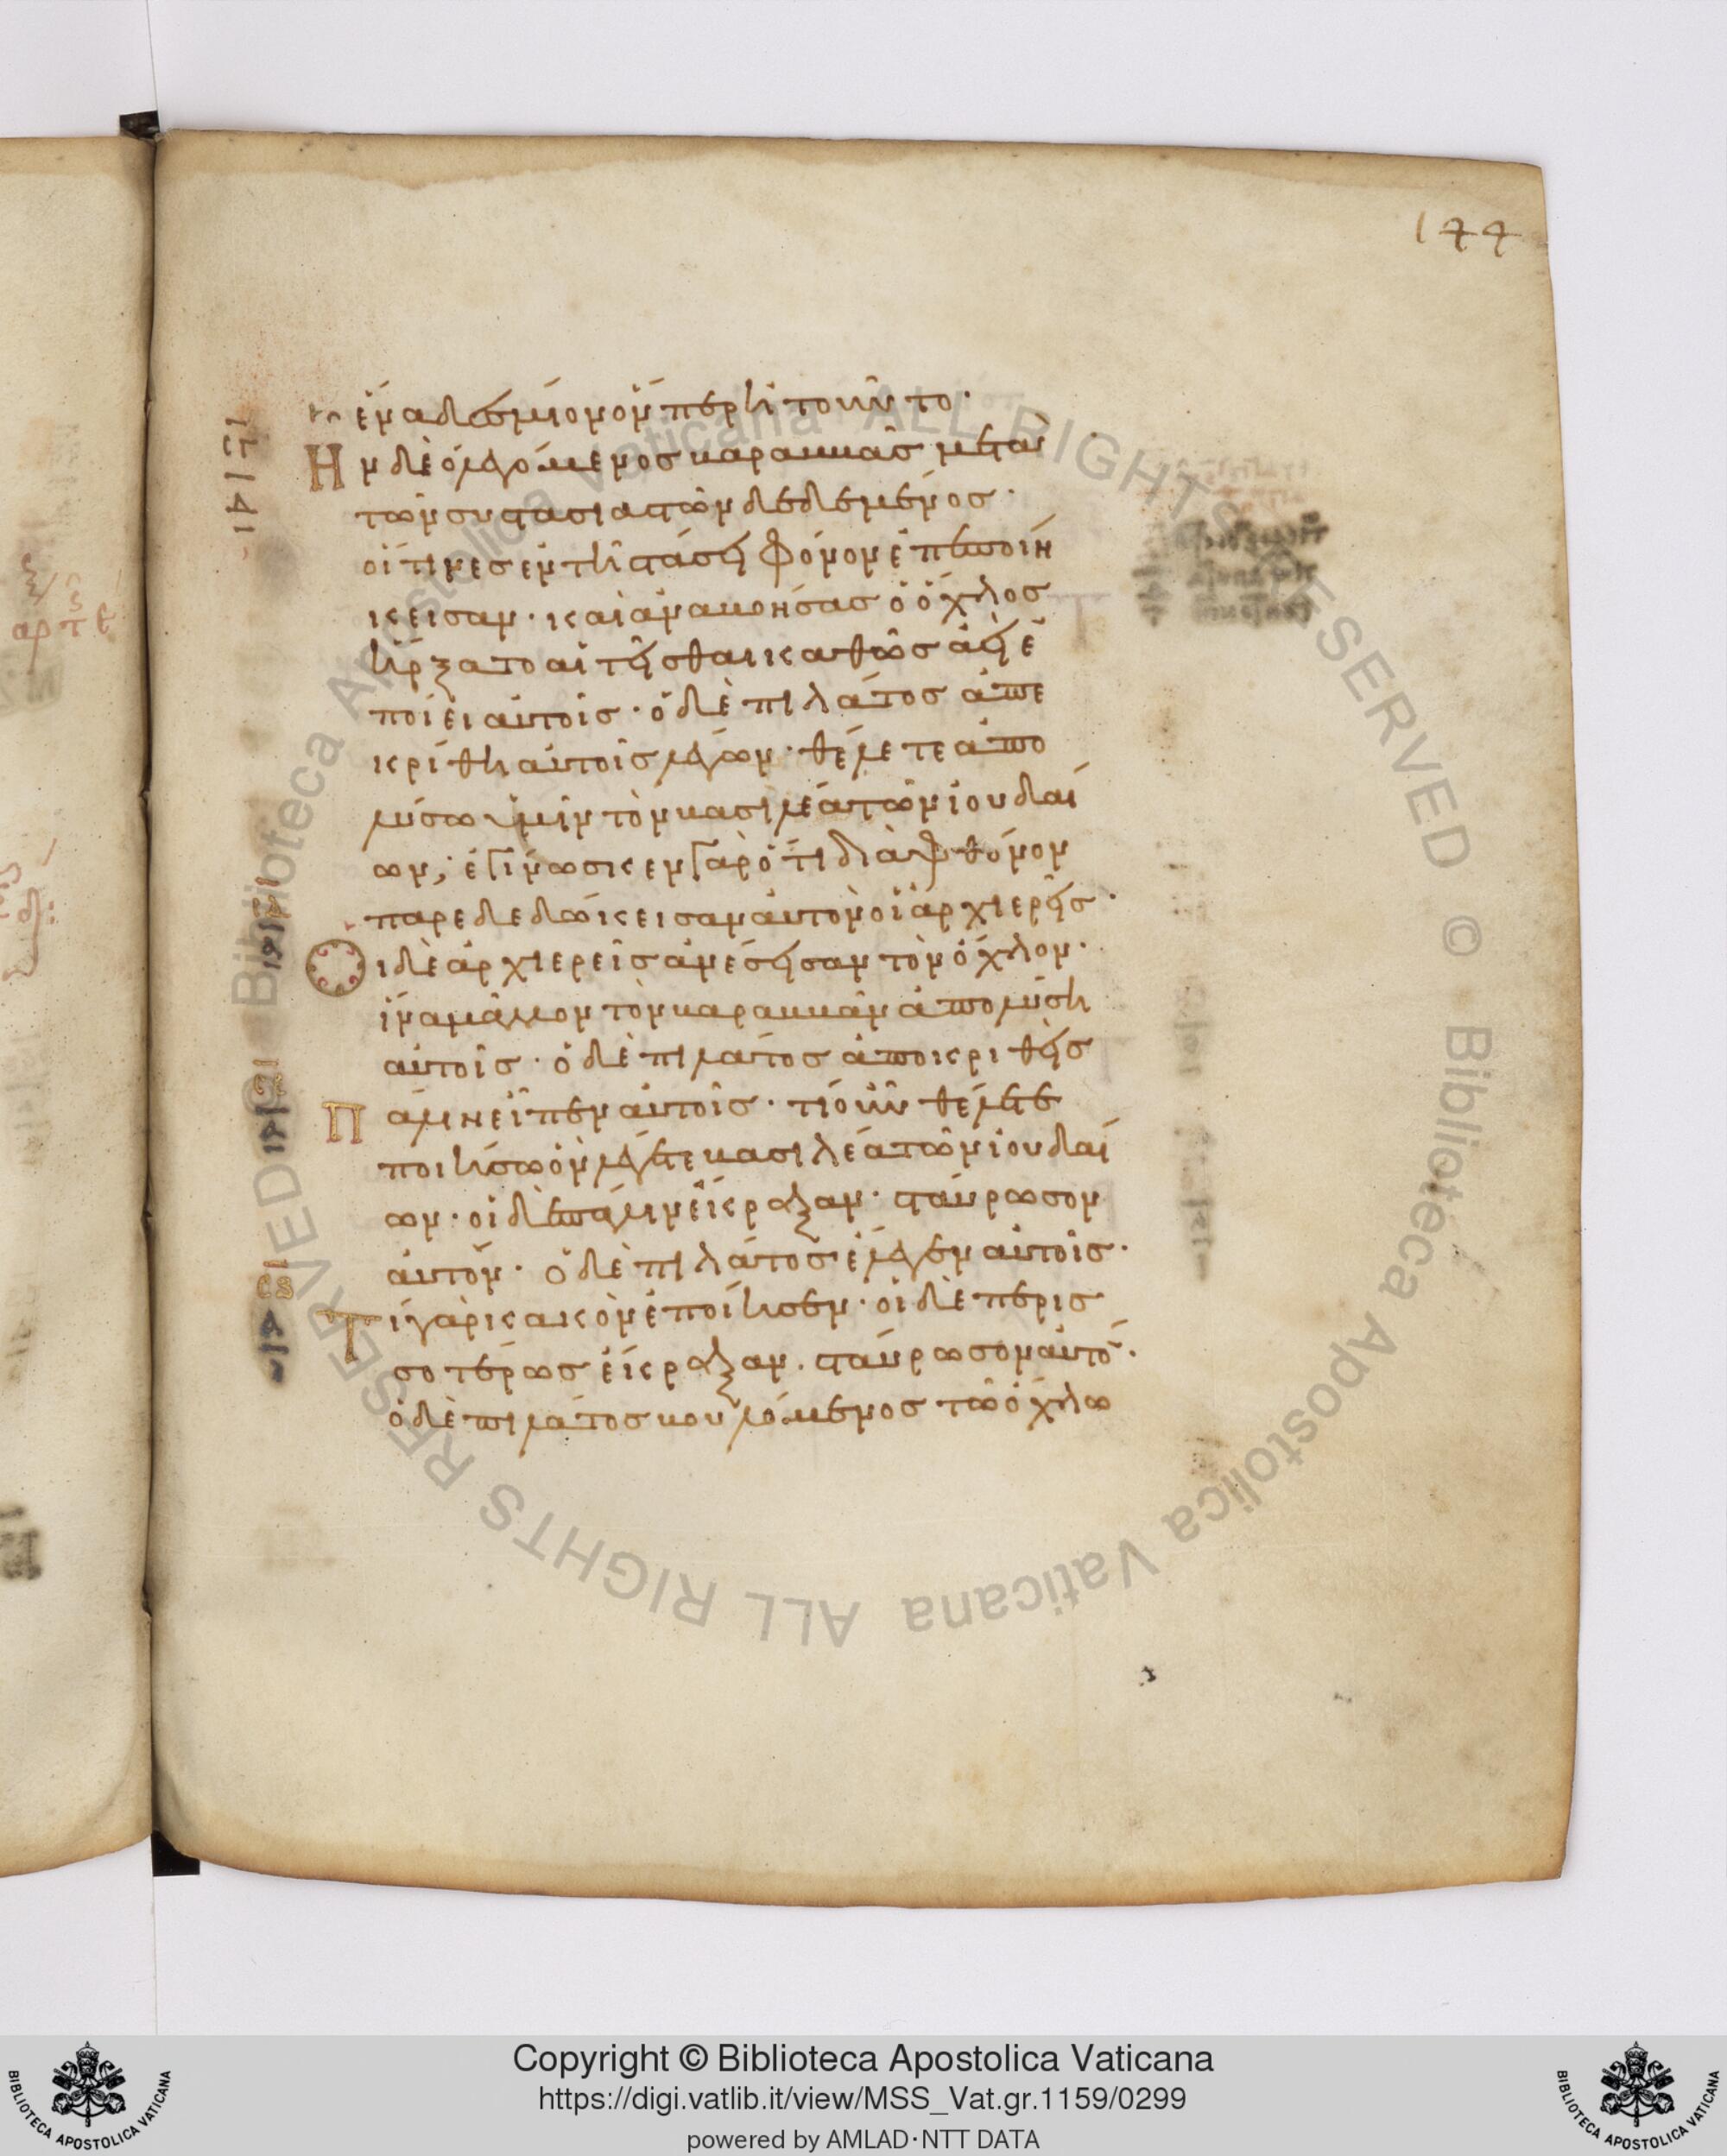 144
ἕνα δέσμιον ὃν περ ἠτοῦντο·
Ην δὲ ὁ λεγόμενος βαραββᾶς μετὰ
τῶν συστασιαστῶν δεδεμένος·
οἵτινες ἐν τῆ στάσει φόνον ἐπεποιή
κεισαν· καὶ ἀναβοήσας ὁ ὄχλος
ἤρξατο αἰτεῖσθαι καθὼς ἀεὶ ἐ
ποίει αὐτοῖς· ὁ δὲ πιλάτος ἀπε
κρίθη αὐτοῖς λέγων· θέλετε ἀπο
λύσω ὑμῖν τὸν βασιλέα τῶν ἰουδαί
ων; ἐγίνωσκεν γὰρ ὅτι διὰ φθόνον
παρεδεδώκεισαν αὐτὸν οἱ ἀρχιερεῖς·
Οι δὲ ἀρχιερεῖς ἀνέσεισαν τὸν ὄχλον·
ἵνα μᾶλλον τὸν βαραββᾶν ἀπολύση
αὐτοῖς· ὁ δὲ πιλάτος ἀποκριθεὶς
Παλιν εἶπεν αὐτοῖς· τί οὖν θέλετε
ποιήσω ὃν λέγετε βασιλέα τῶν ἰουδαί
ων· οἱ δὲ πάλιν ἔκραξαν· σταύρωσον
αὐτόν· ὁ δὲ πιλάτος ἔλεγεν αὐτοῖς·
Τί γὰρ κακὸν ἐποίησεν· οἱ δὲ περισ
σοτέρως ἔκραξαν· σταύρωσον αὐτό̅·
ὁ δὲ πιλάτος βουλόμενος τῶ ὄχλω
ALL RIGHTS RESERVED © Biblioteca Apostolica Vaticana ALL RIGHTS RESERVED © Biblioteca Apostolica Vaticana
BIBLIOTECA APOSTOLICA VATICANA
Copyright © Biblioteca Apostolica Vaticana
https://digi.vatlib.it/view/MSS_Vat.gr.1159/0299
powered by AMLAD·NTT DATA
BIBLIOTECA APOSTOLICA VATICANA